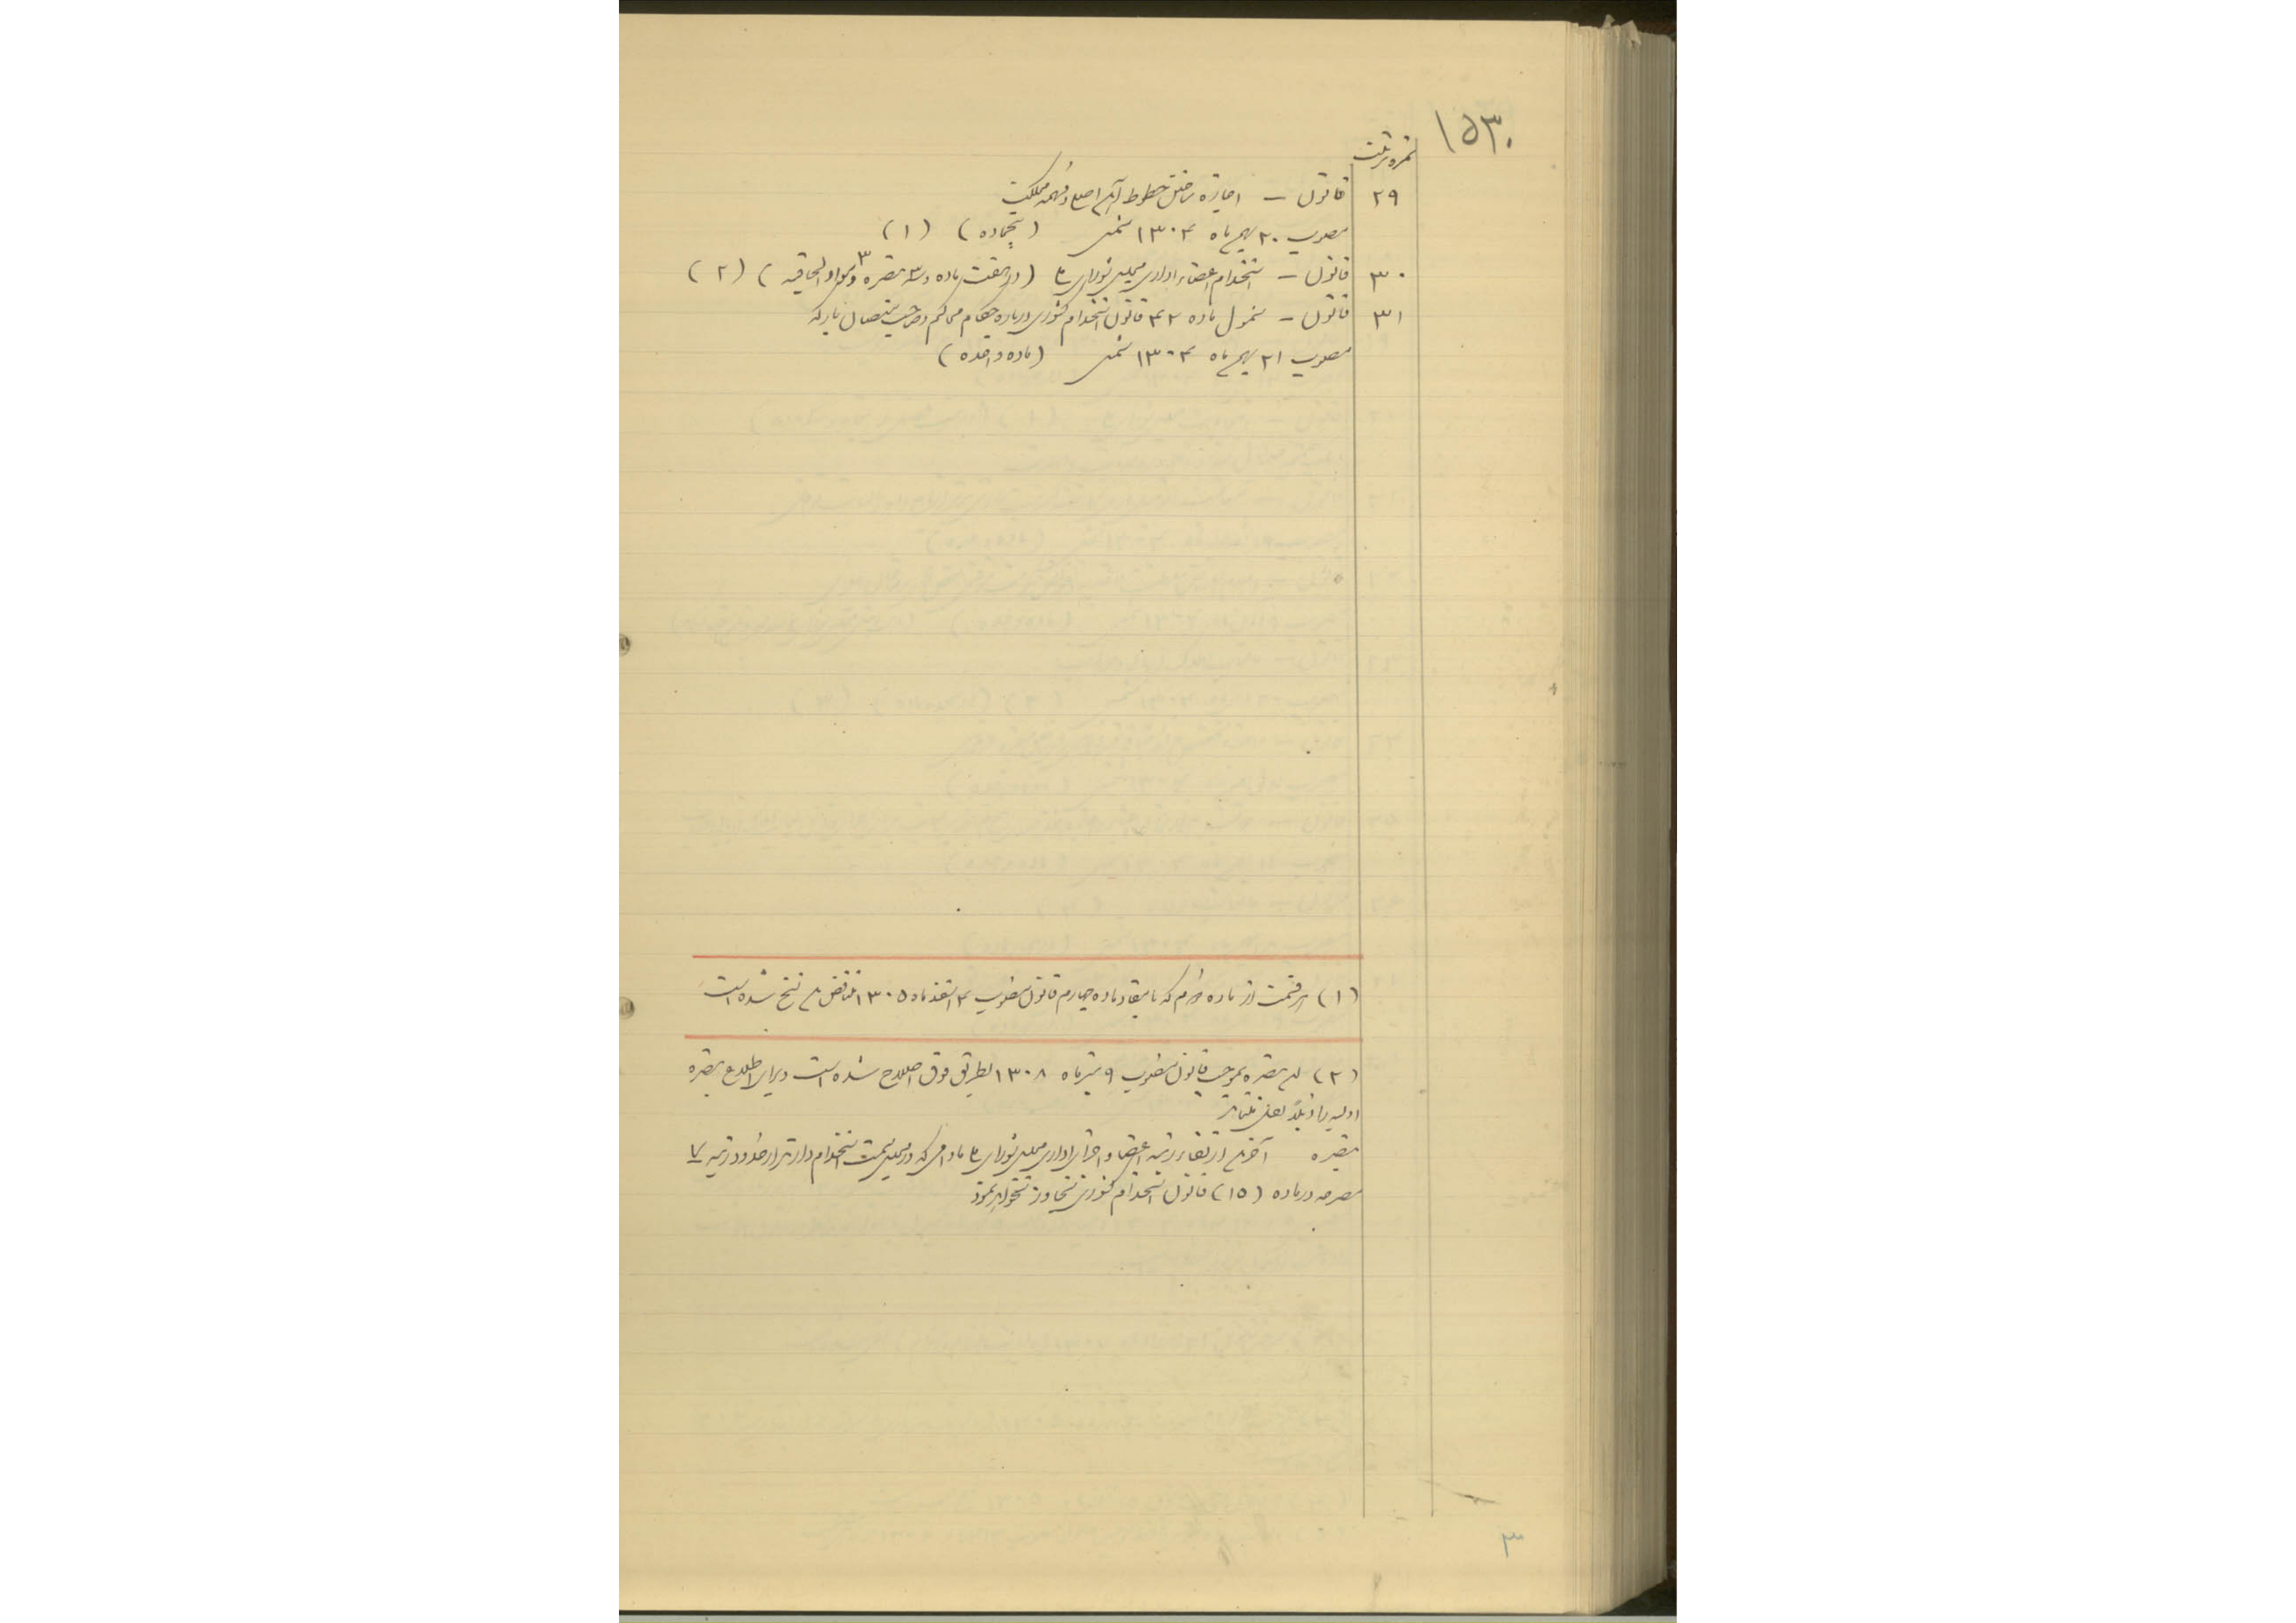 ۱۵۳۰
نمره ترتیب
۲۹ قانون – اجازه ساختن خطوط آهن اصلی و مهمه مملکت
مصوب ۲۰ بهمن ماه ۱۳۰۴ شمسی (پنجماده) (۱)
۳۰ قانون – استخدام اعضاء اداری مجلس شورای ملی (در هفت ماده و سه تبصره و ۳ مواد الحاقیه) (۲)
۳۱ قانون – شمول ماده ۴۲ قانون استخدام کشوری درباره حکام محاکم و صاحب‌منصبان پارکه
مصوب ۲۱ بهمن ماه ۱۳۰۴ شمسی (ماده واحده)
(۱) هر قسمت از ماده که با مفاد ماده چهارم قانون مصوب ۴ اسفند ماه ۱۳۰۵ متناقض نسخ شده است
(۲) این تبصره بموجب قانون مصوب ۹ تیر ماه ۱۳۰۸ بطریق فوق اصلاح شده است و برای اطلاع تبصره
اولیه را ذیلاً نقل
تبصره آخرین ارتقاء رتبه اعضاء و اجزای اداری مجلس شورای ملی مادامی که در مجلس سمت استخدام دارند از حدود رتبه ۷
مصرحه در ماده (۱۵) قانون استخدام کشوری تجاوز نخواهد نمود
۳